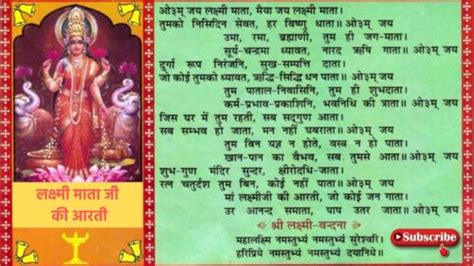 ओ३म् जय लक्ष्मी माता, मैया जय लक्ष्मी माता।
तुमको निसिदिन सेवत, हर विष्णु धाता॥ ओ३म् जय
उमा, रमा, ब्रह्माणी, तुम ही जग-माता।
सूर्य-चन्द्रमा ध्यावत, नारद ऋषि गाता॥ ओ३म् जय
दुर्गा रूप निरंजनि, सुख-सम्पत्ति दाता।
जो कोई तुमको ध्यावत, ऋद्धि-सिद्धि धन पाता॥ ओ३म् जय
तुम पाताल-निवासिनि, तुम ही शुभदाता।
कर्म-प्रभाव-प्रकाशिनि, भवनिधि की त्राता॥ ओ३म् जय
जिस घर में तुम रहती, सब सद्गुण आता।
सब सम्भव हो जाता, मन नहीं घबराता॥ ओ३म् जय
तुम बिन यज्ञ न होते, वस्त्र न हो पाता।
खान-पान का वैभव, सब तुमसे आता॥ ओ३म् जय
शुभ-गुण मंदिर सुन्दर, क्षीरोदधि-जाता।
रत्न चतुर्दश तुम बिन, कोई नहीं पाता॥ ओ३म् जय
मां लक्ष्मीजी की आरती, जो कोई जन गाता।
उर आनन्द समाता, पाप उतर जाता॥ ओ३म् जय
श्री लक्ष्मी-वन्दना
महालक्ष्मि नमस्तुभ्यं नमस्तुभ्यं सुरेश्वरि।
हरिप्रिये नमस्तुभ्यं नमस्तुभ्यं दयानिधे॥
लक्ष्मी माता जी
की आरती
Subscribe